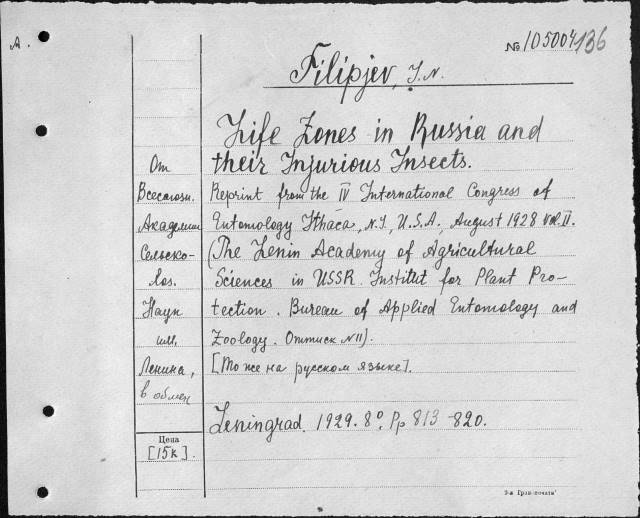 A.
№ 105004/136
Filipjev, J. N.
Life Zones in Russia and
their Injurious Insects.
Reprint from the IV International Congress of
Entomology Ithaca, N.Y., U.S.A., August 1928 Vol. II.
(The Lenin Academy of Agricultural
Sciences in USSR. Institut for Plant Pro-
tection. Bureau of Applied Entomology and
Zoology. Оттиск № 11).
[То же на русском языке].
Leningrad. 1929. 8°. Pp 813-820.
От
Всесоюзн.
Академии
Сельско-
хоз.
Наук
им.
Ленина,
в обмен
Цена
[15к].